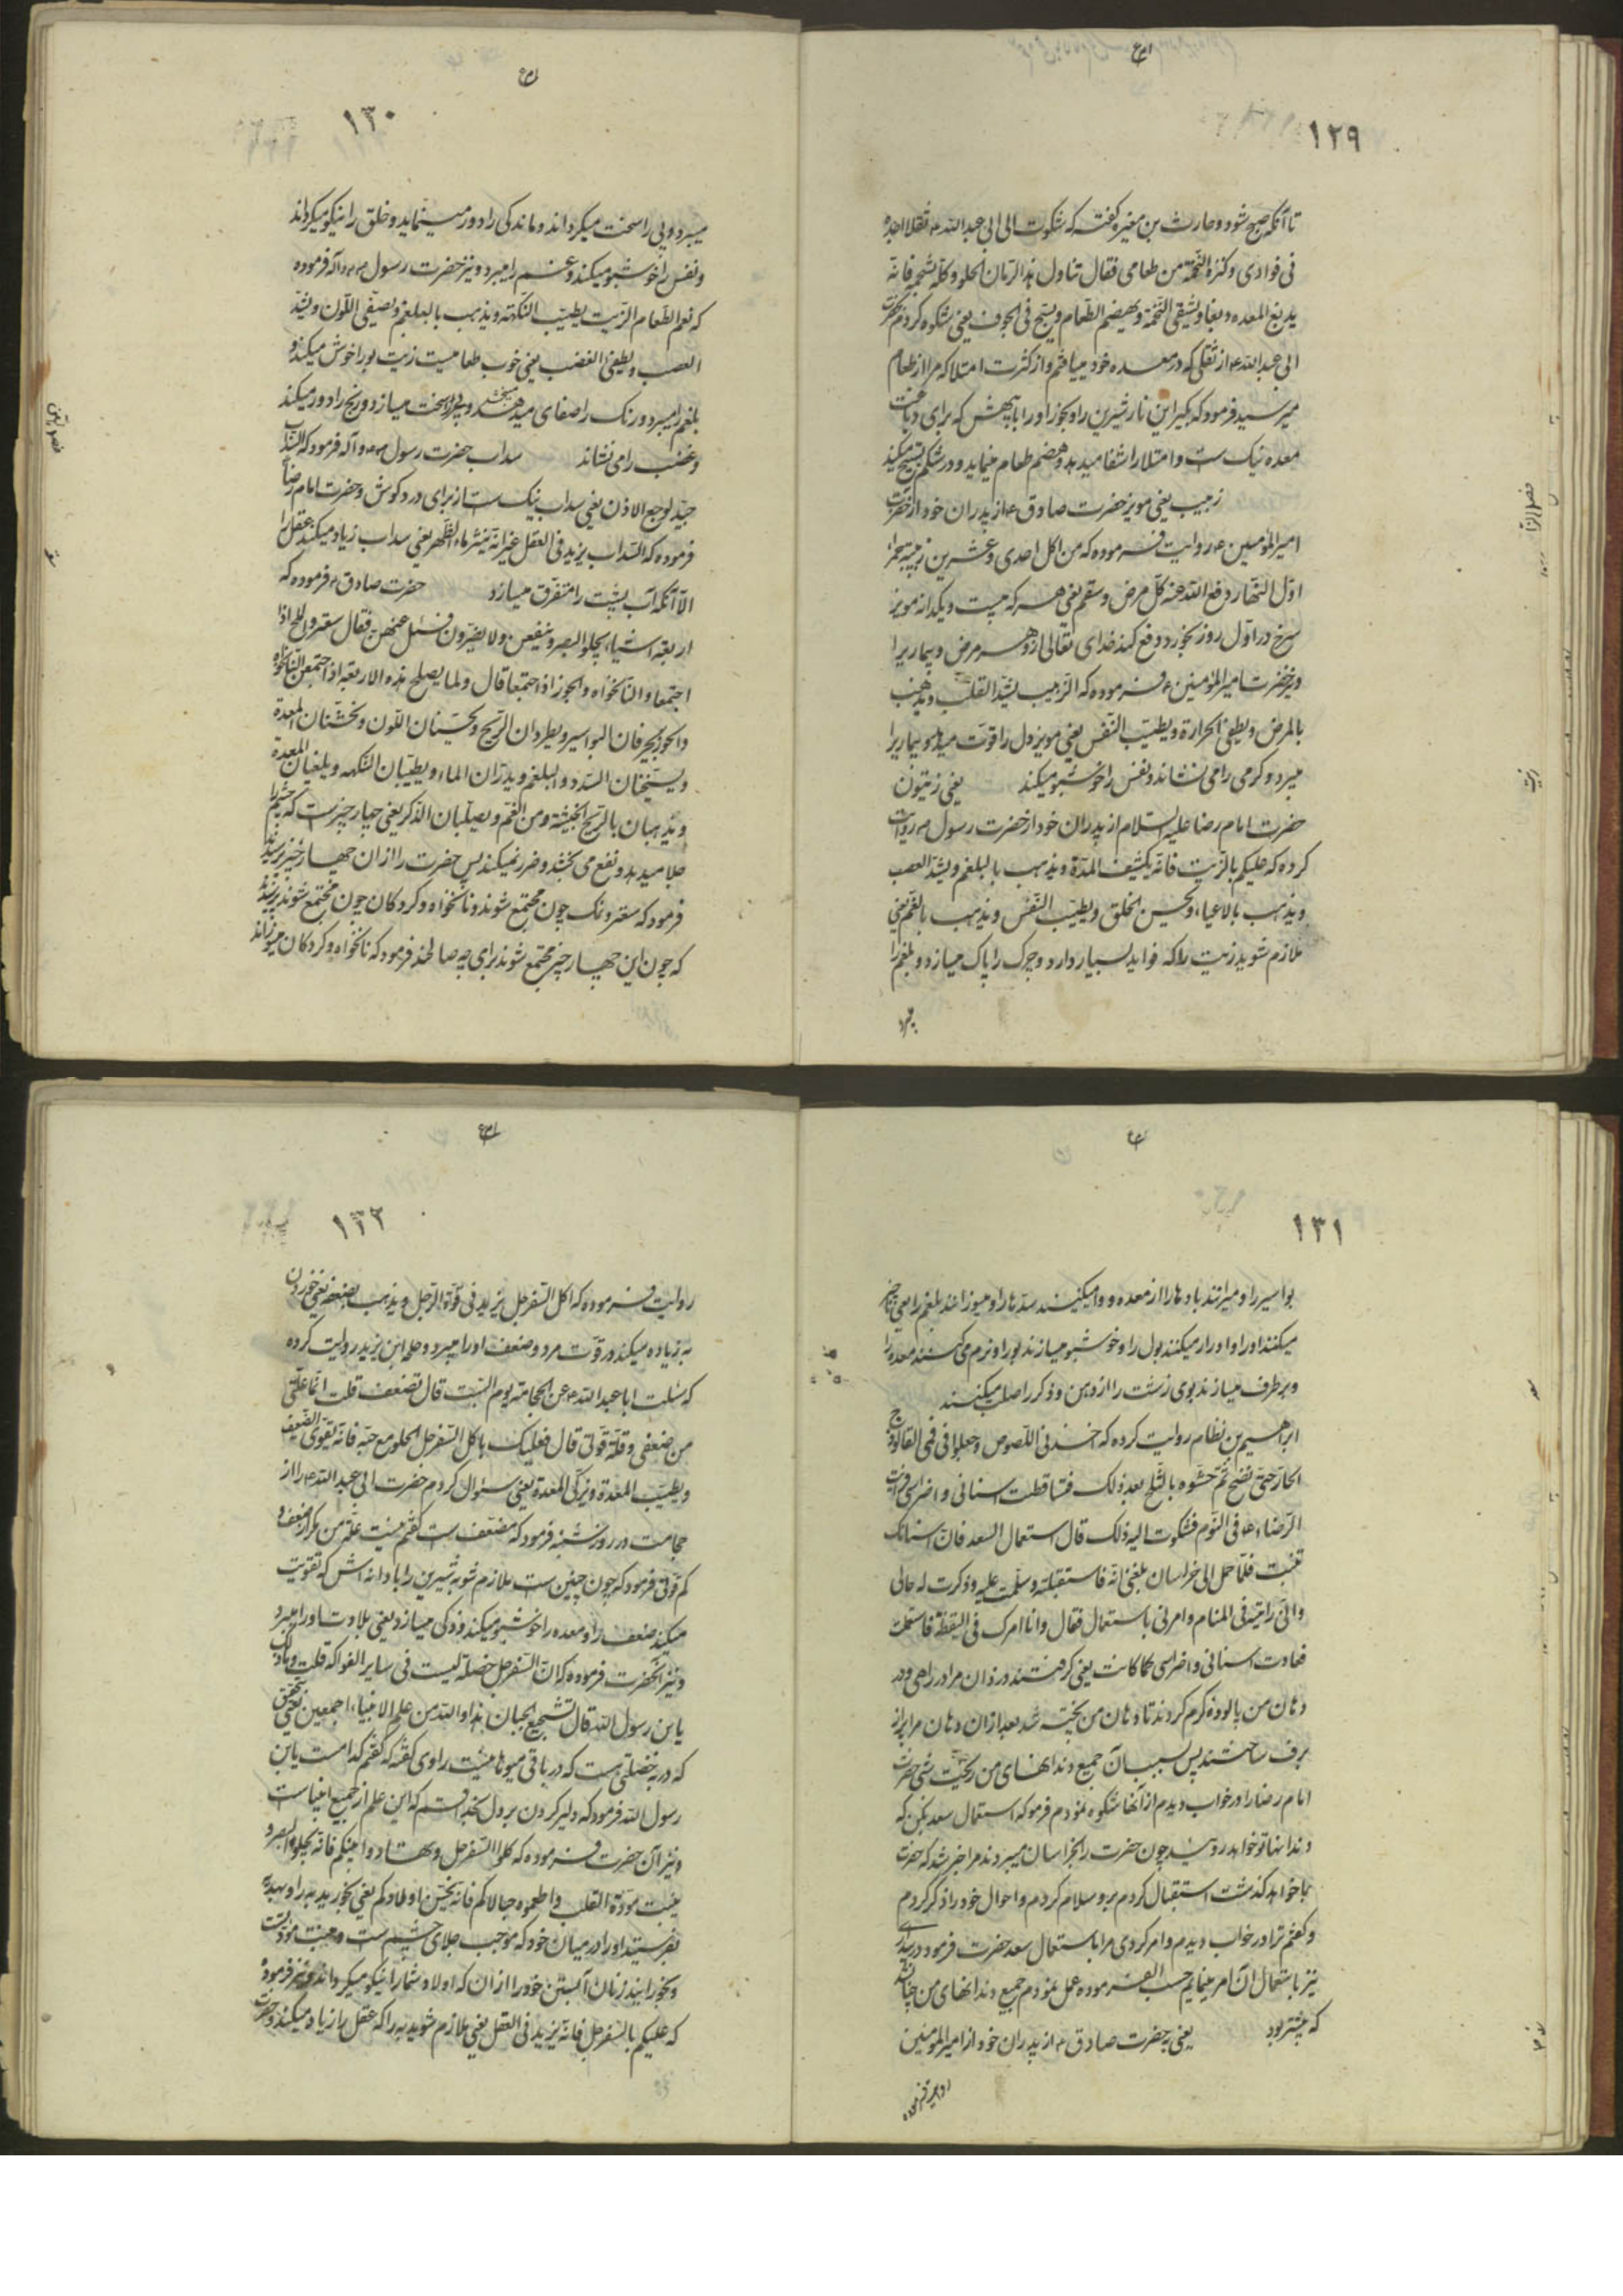 ۱۲۹
تا آنکه صبح شود و حارث بن مغیره گفته که شکوت الی ابی عبدالله ع ثقلا اجده
فی فوادی و کثرة التخمة من طعامی فقال تناول هذا الرمان الحلو و کله بشحمه فانه
یدبغ المعده دبغا و یشفی التخمة و یهضم الطعام و یسبح فی الجوف یعنی شکوه کردم بحضرت
ابی عبدالله ع از ثقلی که در معده خود مییافتم و از کثرت امتلا که مرا از طعام
میرسید فرمود که بگیر این نار شیرین را و بخور او را با پیهش که برای دباغت
معده نیک است و امتلا را شفا میدهد و هضم طعام مینماید و در شکم تسبیح میکند
زبیب یعنی مویز حضرت صادق ع از پدران خود از حضرت
امیرالمؤمنین ع روایت فرموده که من اکل احدی و عشرین زبیبة حمراء
اول النهار دفع الله عنه کل مرض و سقم یعنی هر که بیست و یکدانه مویز
سرخ در اول روز بخورد دفع کند خدای تعالی از و هر مرض و بیماریرا
و نیز حضرت امیرالمؤمنین ع فرموده که الزبیب یشد القلب و یذهب
بالمرض و یطفی الحرارة و یطیب النفس یعنی مویز دل را قوت میدهد و بیماریرا
میبرد و گرمی را می نشاند و نفس را خوشبو میکند یعنی زیتون
حضرت امام رضا علیه السلام از پدران خود از حضرت رسول ص روایت
کرده که علیکم بالزیت فانه یکشف المرة و یذهب بالبلغم و یشد العصب
و یذهب بالاعیاء و یحسن الخلق و یطیب النفس و یذهب بالغم یعنی
ملازم شوید زیت را که فواید بسیار دارد و چرک را پاک میسازد و بلغم را
میبرد
۱۳۰
میبرد و پی را سخت میگرداند و ماندگی را دور مینماید و خلق را نیکو میگرداند
و نفس را خوشبو میکند و غم را میبرد و نیز حضرت رسول ص و آله فرموده
که نعم الطعام الزیت یطیب النکهة و یذهب بالبلغم و یصفی اللون و یشد
العصب و یطفئ الغضب یعنی خوب طعامیست زیت بو را خوش میکند و
بلغم را میبرد و رنگ را صفای میدهد و پی را سخت میسازد و رنج را دور میکند
و غضب را می نشاند سداب حضرت رسول ص و آله فرمود که السداب
جید لوجع الاذن یعنی سداب نیک است از برای درد گوش و حضرت امام رضا
فرموده که السداب یزید فی العقل غیر انه ینثر ماء الظهر یعنی سداب زیاد میکند عقل را
الا آنکه آب پشت را متفرق میسازد حضرت صادق ع فرموده که
اربعة اشیاء یجلو البصر و ینفعن و لا یضررن فسئل عنهن فقال سعتر و الملح اذا
اجتمعا و النانخواه و الجوز اذا اجتمعا قال و لما یصلح هذه الاربعة اذا اجتمعن النانخواه
و الجوز یحرقان البواسیر و یطردان الریح و یحسنان اللون و یخشنان المعدة
و یسخنان السدد و البلغم و یدران الماء و یطیبان النکهة و یلینان المعدة
و یذهبان بالریح الخبیثة من الفم و یصلبان الذکر یعنی چهار چیز است که چشم را
جلا میدهد و نفع می بخشد و ضرر نمیکند پس حضرت را از آن چهار چیز پرسیدند
فرمود که سعتر و نمک چون مجتمع شوند و نانخواه و گردکان چون مجتمع شوند پرسیدند
که چون این چهار چیز مجتمع شوند برای چه صالحند فرمود که نانخواه و گردکان میسوزاند
۱۳۱
بواسیر را و میرانند بادها را از معده و وا میکنند سدها را و میسوزانند بلغم را یعنی
میکنند او را و ادرار میکنند بول را و خوشبو میسازند بو را و نرم می کنند معده را
و برطرف میسازند بوی زشت را از دهن و ذکر را صلب میکنند
ابراهیم بن نظام روایت کرده که اخذنی اللصوص و جعلوا فی فمی الفالوذج
الحار حتی نضج ثم حشوه بالثلج بعد ذلک فتساقطت اسنانی و اضراسی فرایت
الرضاء ع فی النوم فشکوت الیه ذلک قال استعمال السعد فان اسنانک
تنبت فلما حمل الی خراسان بلغنی انه فاستقبلته و سلمت علیه و ذکرت له حالی
و انی رایته فی المنام و امرنی باستعمال فقال و انا امرک فی الیقظة فاستعملت
فعادت اسنانی و اضراسی کما کانت یعنی گرفتند دزدان مرا در راهی و در
دهان من پالوده گرم کردند تا دهان من پخته شد بعد از آن دهان مرا پر از
برف ساختند پس بسبب آن جمیع دندانهای من ریخت شبی حضرت
امام رضا را در خواب دیدم از آنها شکوه نمودم فرمود که استعمال سعد بکن که
دندانها تو خواهد روئید چون حضرت را بخراسان میبردند مرا خبر شد که حضرت
بما خواهد گذشت استقبال کردم برو سلام کردم و احوال خود را ذکر کردم
و گفتم ترا در خواب دیدم و امر کردی مرا باستعمال سعد حضرت فرمود در بیداری
نیز باستعمال آن امر مینمایم حسب الفرموده عمل نمودم جمیع دندانهای من چنان شد
که پیشتر بود یعنی به حضرت صادق ع از پدران خود از امیرالمومنین
۱۳۲
روایت فرموده که اکل السفرجل یزید فی قوة الرجل و یذهب بضعفه یعنی خوردن
به زیاده میکند در قوت مرد و ضعف او را میبرد و طلحه ابن یزید روایت کرده
که سئلت ابا عبدالله ع عن الحجامة یوم السبت قال تضعف قلت انما علتی
من ضعفی و قلة قوتی قال فعلیک باکل السفرجل الحلو مع حبه فانه یقوی الضعیف
و یطیب المعدة و یزکی المعدة یعنی سئوال کردم حضرت ابی عبدالله ع را از
حجامت در روز شنبه فرمود که مضعف است گفتم نیست علت من مگر از ضعف و
کم قوتی فرمود که چون چنین است ملازم شو به شیرین را با دانه اش که تقویت
میکند ضعف را و معده را خوشبو میکند و زکی میسازد یعنی بلادت او را میبرد
و نیز آنحضرت فرموده که ان السفرجل خصلة لیست فی سایر الفواکه قلت و ما ذلک
یابن رسول الله قال تشجع الجبان هذا و الله من علم الانبیاء اجمعین یعنی بتحقیق
که در به خصلتی هست که در باقی میوها نیست راوی گفته که گفتم کدامست یابن
رسول الله فرمود که دلیر کردن بر دل بخدا قسم که این علم از جمیع انبیا است
و نیز آن حضرت فرموده که کلوا السفرجل و تهادوا بینکم فانه یجلو البصر و
ینبت مودة القلب و اطعموه حبالاکم فانه یحسن اولادکم یعنی بخورید به را و بهدیه
بفرستید او را در میان خود که موجب جلای چشم است و منبت مودت
و بخورانید زنان آبستن خود را از آن که اولاد شما را نیکو میگرداند و نیز فرموده
که علیکم بالسفرجل فانه یزید فی العقل یعنی ملازم شوید به را که عقل را زیاد میکند و حضرت